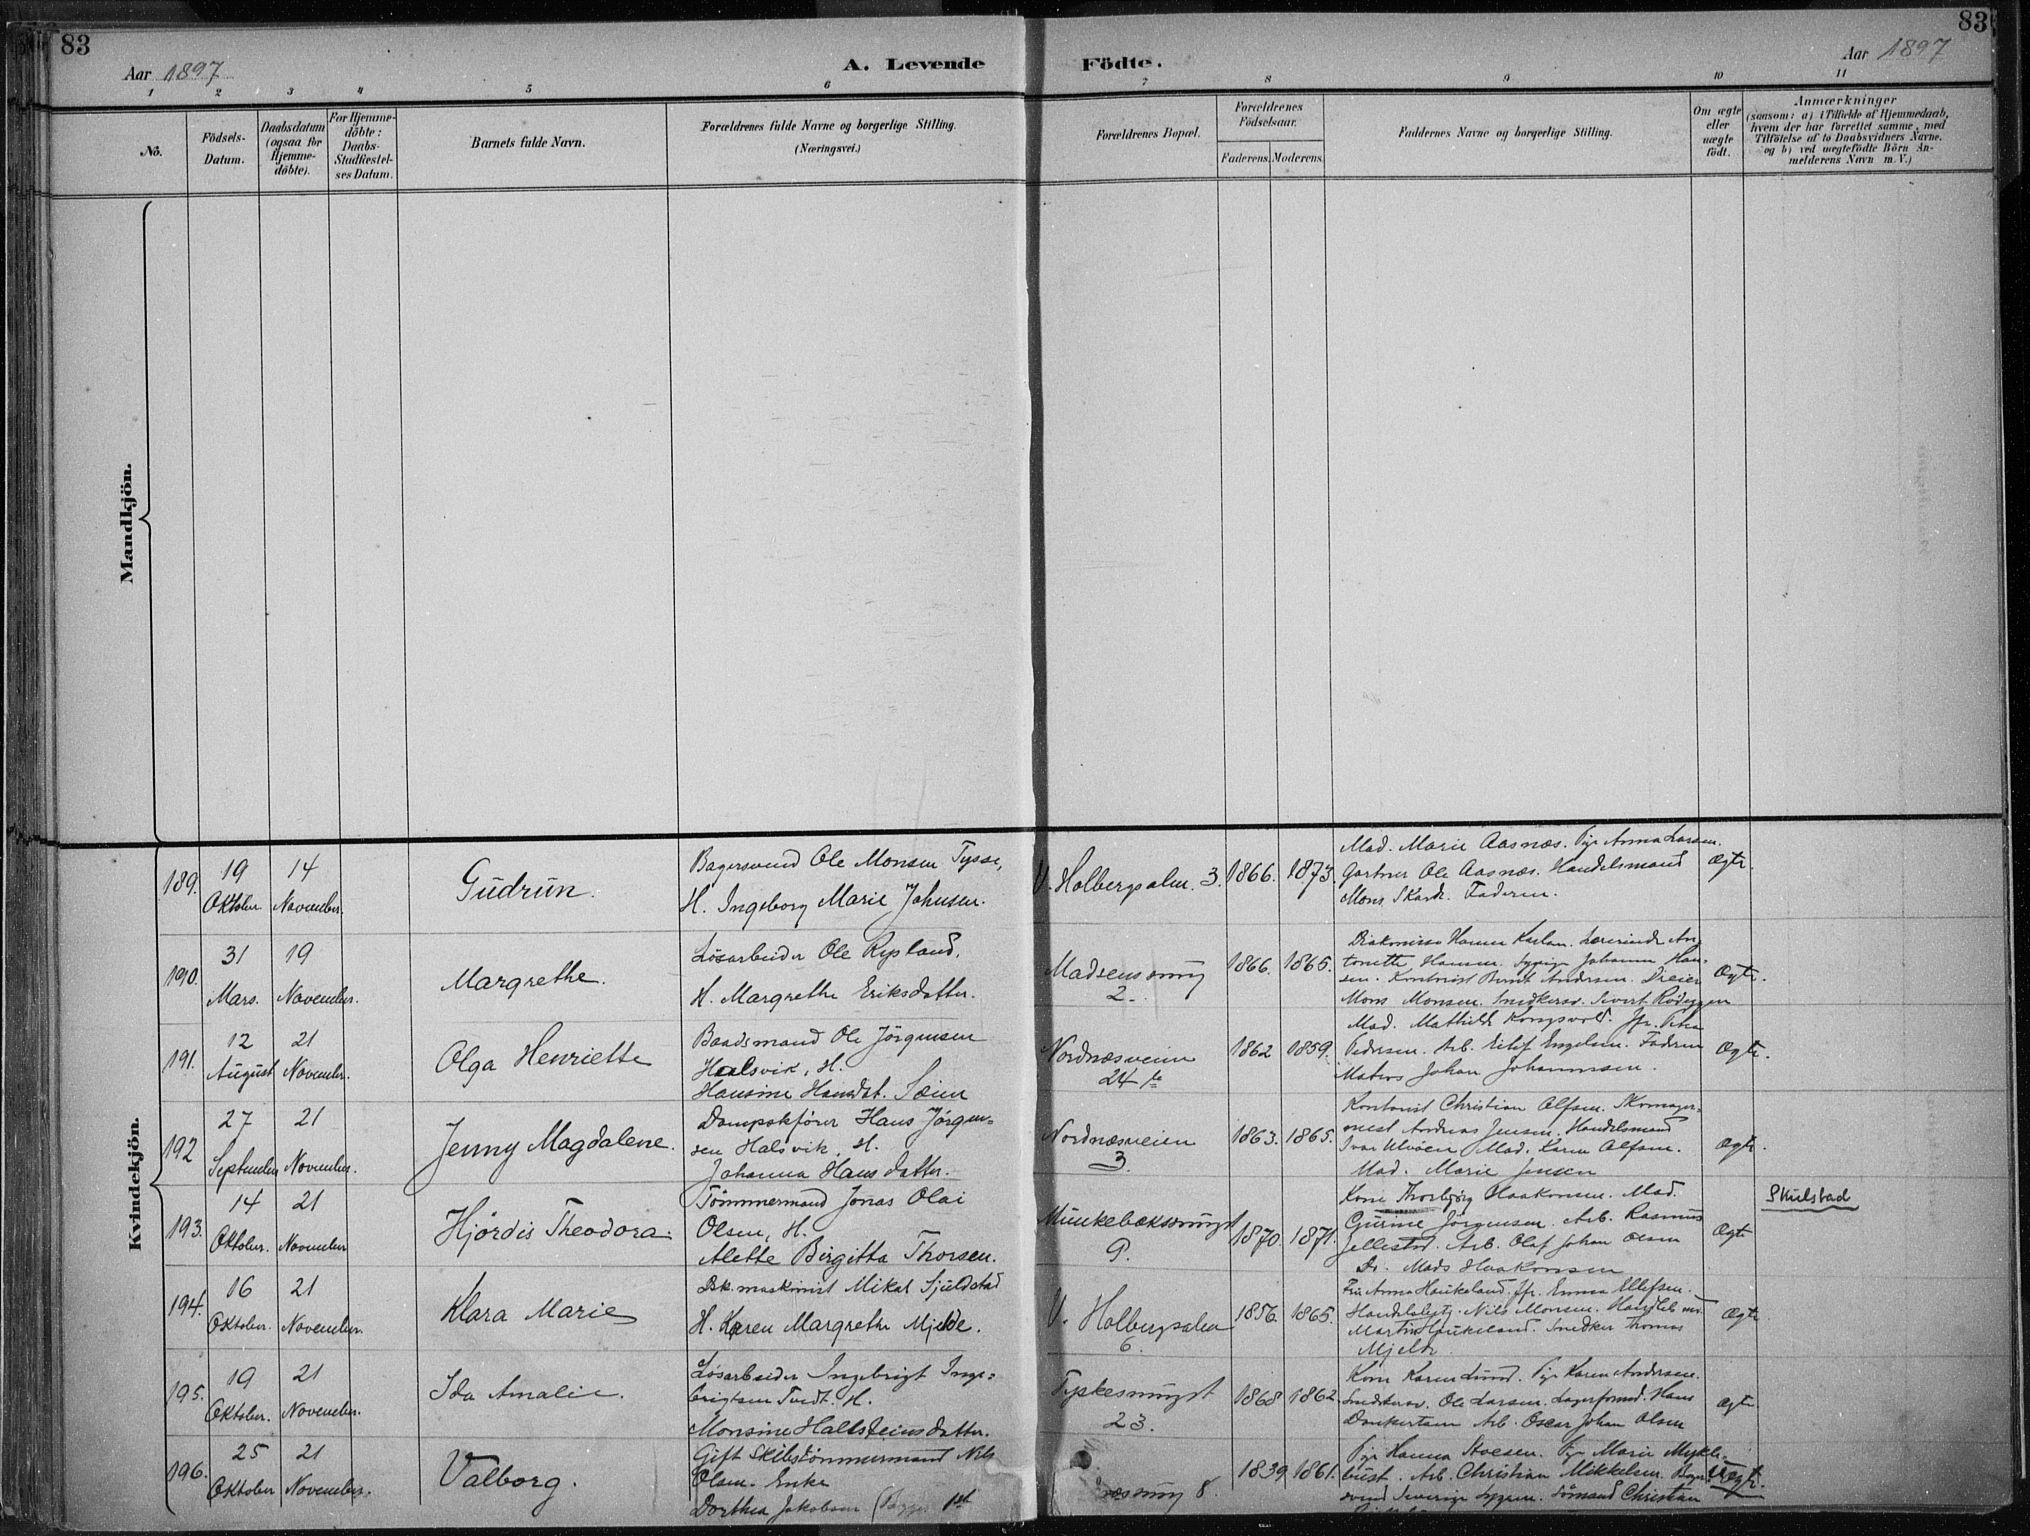 83
83
Aar 1897
A. Levende
Födte.
Aar 1897
1 2 3 4 5 6 7 8 9 10 11
Nö.
Födsels-Datum.
Daabsdatum (ogsaa for Hjemme-döbte).
For Hjemme-döbte: Daabs-Stadfæstel-ses Datum.
Barnets fulde Navn.
Forældrenes fulde Navne og borgerlige Stilling.
(Næringsvei.)
Forældrenes Bopæl.
Forældrenes Födselsaar.
Faderens. Moderens.
Faddernes Navne og borgerlige Stilling.
Om ægte eller uægte födt.
Anmærkninger
(saasom: a) i Tilfælde af Hjemmedaab,
hvem der har forrettet samme, med
Tilföielse af to Daabsvidners Navne.
og b) ved uægtefödte Börn An-
melderens Navn m. V.)
Mandkjön.
Kvindekjön.
189. 19 Oktober. 14 November.
Gudrun.
Bagersvend Ole Monsen Tysse,
H. Ingeborg Marie Johnsen.
V. Holbergsalm. 3. 1866. 1873.
Mad. Marie Aasnæs. Pige Anna Larsen.
Gartner Ole Aasnæs. Handelsmand
Mons Skard. Faderen.
Ægte.
190. 31 Mars. 19 November.
Margrethe.
Løsarbeider Ole Rypland,
H. Margrethe Eriksdatter.
Madsenssmug
2. 1866. 1865.
Diakonisse Hanna Lærerinde An-
tonette Hansen. Sypige Johanne Han-
sen. Kontorist Bernt Andersen. Dreier
Mons Monsen. Snedkersv. Sivert
Ægte.
191. 12 August 21 November.
Olga Henriette
Baadsmand Ole Jörgensen
Halsvik, H.
Hansine Hansdat. Sæim
Nordnæsveien
24 1862 1859.
Mad. Mathilde Kongsvold. Jfr. Petra
Pedersen. Arb. Eilif Engelsen. Faderen
Matros Johan Johannesen.
Ægte.
192 27 September 21 November.
Jenny Magdalene.
Dampskfører Hans Jörgen-
sen Halsvik, H.
Johanna Hansdatter.
Nordnæsveien
3. 1863. 1865.
Kontorist Christian Olfsen. Skomager-
mest Andreas Jensen. Handelsmand
Ivar Ulvöen Mad. Karen Olfsen.
Mad. Marie Jensen
Ægte.
193. 14 Oktober. 21 November
Hjördis Theodora.
Tömmermand Jonas Olai
Olsen, H.
Alette Birgitta Thorsen.
Munkebækssmugst
9. 1870. 1871.
Kone Thorbjörg Haakonsen. Mad.
Gurine Jörgensen. Arb. Rasmus
Jellestad. Arb. Olaf Johan Olsen
Dr. Mads Haakonsen
Ægte
Skulstad
194. 16 Oktober. 21 November.
Klara Marie
Bk. maskinist Mikal Sjulstad
H. Karen Margrethe Mjelde.
V. Holbergsalm
6. 1856. 1865.
Fru Anna Haukeland. Jfr. Emma Ellefsen.
Nils Monsen.
Martin Haukeland. Snedker Thomas
Mjelde
Ægte
195. 19 Oktober. 21 November.
Ida Amalie.
Løsarbeider Ingebrigt Inge-
brigtsen Tvedt. H.
Monsine Hallsteinsdatter.
Tyskesmugst
23. 1868 1862
Kone Karen Lund. Pige Karen Andersen.
Snedkersv. Ole Larsen. Lagerformd. Hans
Arb. Oscar Johan Olsen
Ægte
196. 25 Oktober 21 November.
Valborg.
Gift Skibstömmermand Nils
Olsen. Enke
Dorthea Jakobsen
smug 8 1839. 1861.
Pige Hanna Pige Marie Mykle-
bust. Arb. Christian Mikkelsen. Bager-
svend Sömand Christian
Uægte.